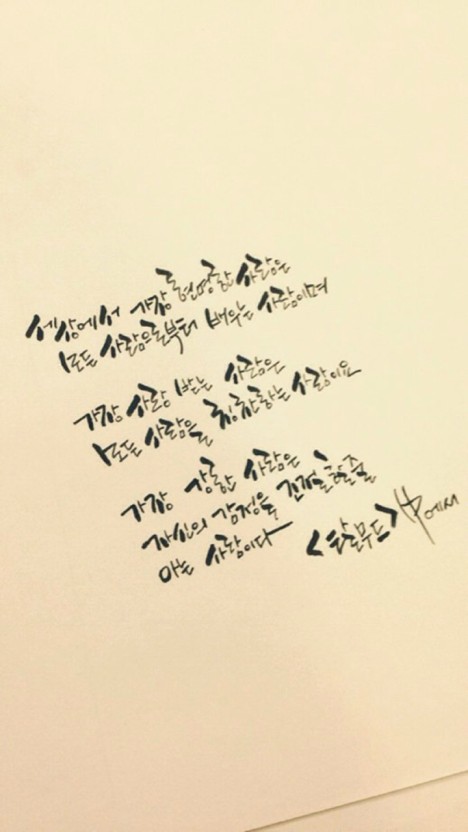 세상에서 가장 현명한 사람은
모든 사람으로부터 배우는 사람이며
가장 사랑 받는 사람은
모든 사람을 칭찬하는 사람이요
가장 강한 사람은
자신의 감정을 조절할 줄
아는 사람이다 <탈무드> 中에서